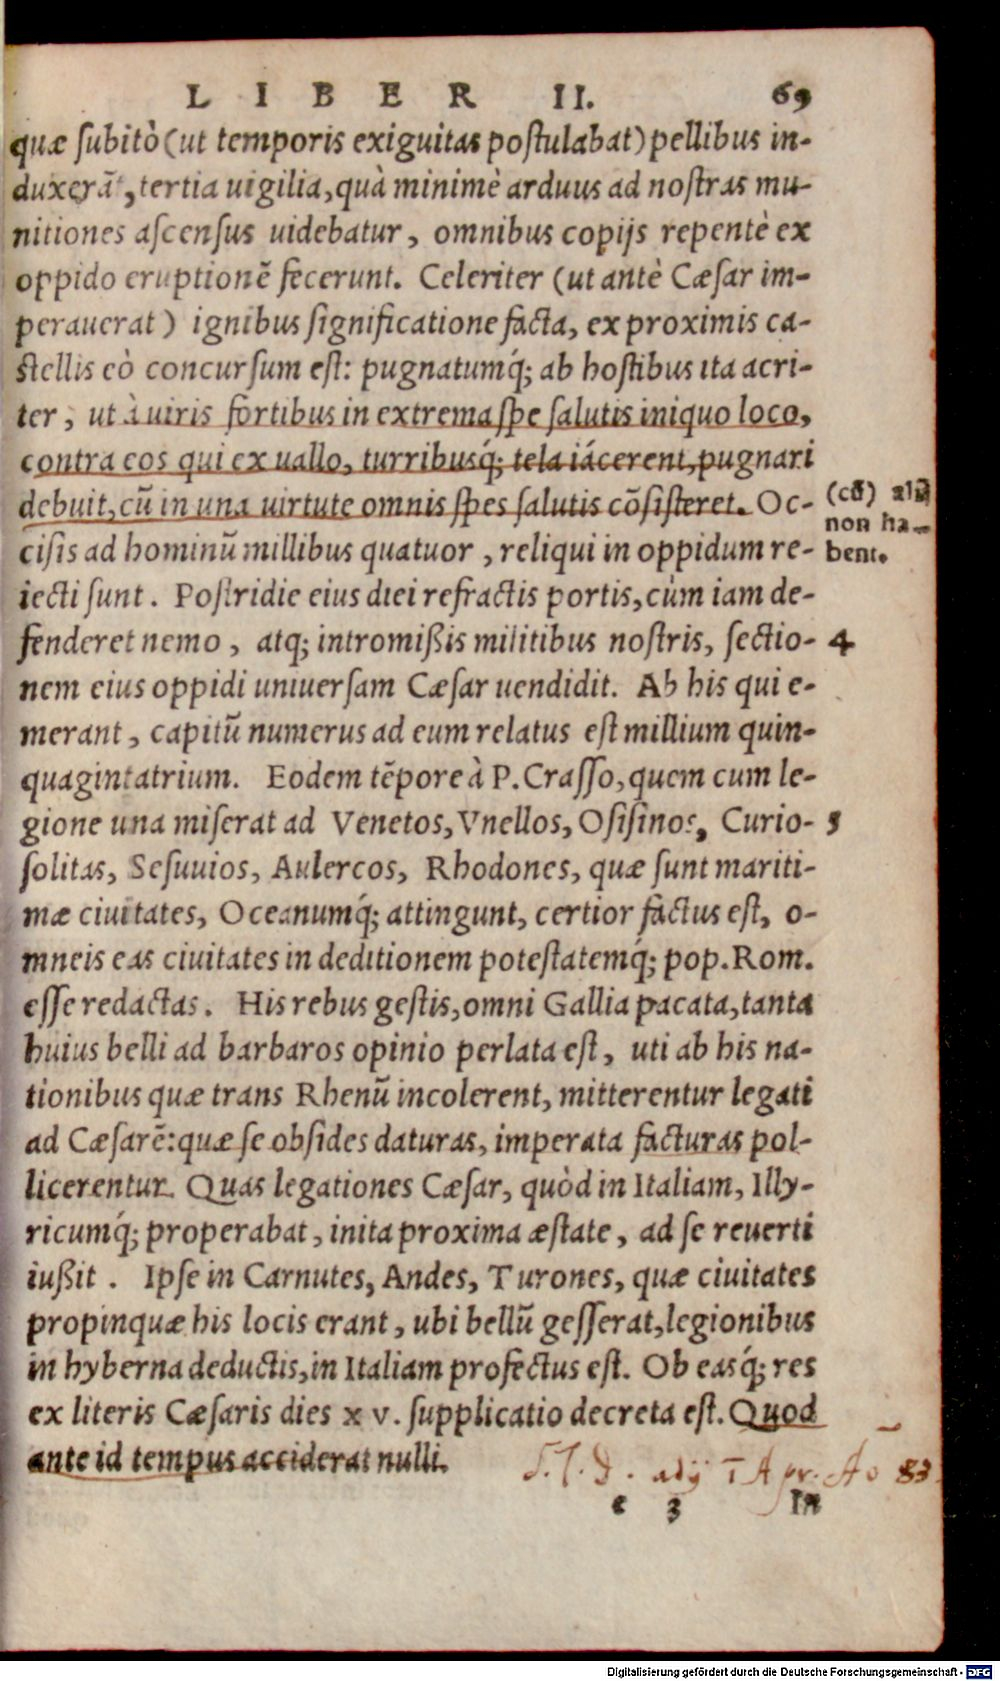 LIBER II. 69
quæ ſubitò (ut temporis exiguitas poſtulabat) pellibus in-
duxerāt, tertia uigilia, quà minimè arduus ad noſtras mu-
nitiones aſcenſus uidebatur, omnibus copijs repentè ex
oppido eruptionē fecerunt. Celeriter (ut antè Cæſar im-
perauerat) ignibus ſignificatione facta, ex proximis ca-
ſtellis eò concurſum eſt: pugnatumq́; ab hoſtibus ita acri-
ter, ut à uiris fortibus in extrema ſpe ſalutis iniquo loco,
contra eos qui ex uallo, turribusq́; tela iácerent, pugnari
debuit, cū in una uirtute omnis ſpes ſalutis cōſiſteret. Oc-
(cū) alij
non ha-
bent.
ciſis ad hominū millibus quatuor, reliqui in oppidum re-
iecti ſunt. Poſtridie eius diei refractis portis, cùm iam de-
fenderet nemo, atq; intromißis militibus noſtris, ſectio- 4
nem eius oppidi uniuerſam Cæſar uendidit. Ab his qui e-
merant, capitū numerus ad eum relatus eſt millium quin-
quagintatrium. Eodem tēpore à P. Craſſo, quem cum le-
gione una miſerat ad Venetos, Vnellos, Oſiſinos, Curio- 5
ſolitas, Seſuuios, Aulercos, Rhodones, quæ ſunt mariti-
mæ ciuitates, Oceanumq́; attingunt, certior factus eſt, o-
mneis eas ciuitates in deditionem poteſtatemq́; pop. Rom.
eſſe redactas. His rebus geſtis, omni Gallia pacata, tanta
huius belli ad barbaros opinio perlata eſt, uti ab his na-
tionibus quæ trans Rhenū incolerent, mitterentur legati
ad Cæſarē: quæ ſe obſides daturas, imperata facturas pol-
licerentur. Quas legationes Cæſar, quòd in Italiam, Illy-
ricumq́; properabat, inita proxima æſtate, ad ſe reuerti
iußit. Ipſe in Carnutes, Andes, Turones, quæ ciuitates
propinquæ his locis erant, ubi bellū geſſerat, legionibus
in hyberna deductis, in Italiam profectus eſt. Ob easq́; res
ex literis Cæſaris dies xv. ſupplicatio decreta eſt. Quod
ante id tempus acciderat nulli.
Apr. Aō 83
e 3 In
Digitalisierung gefördert durch die Deutsche Forschungsgemeinschaft - DFG